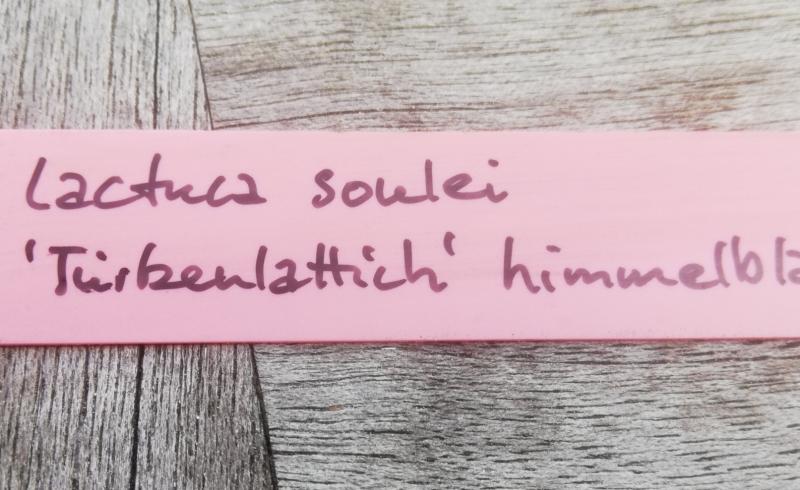 Lactuca soulei
'Türkenlattich' himmelbla